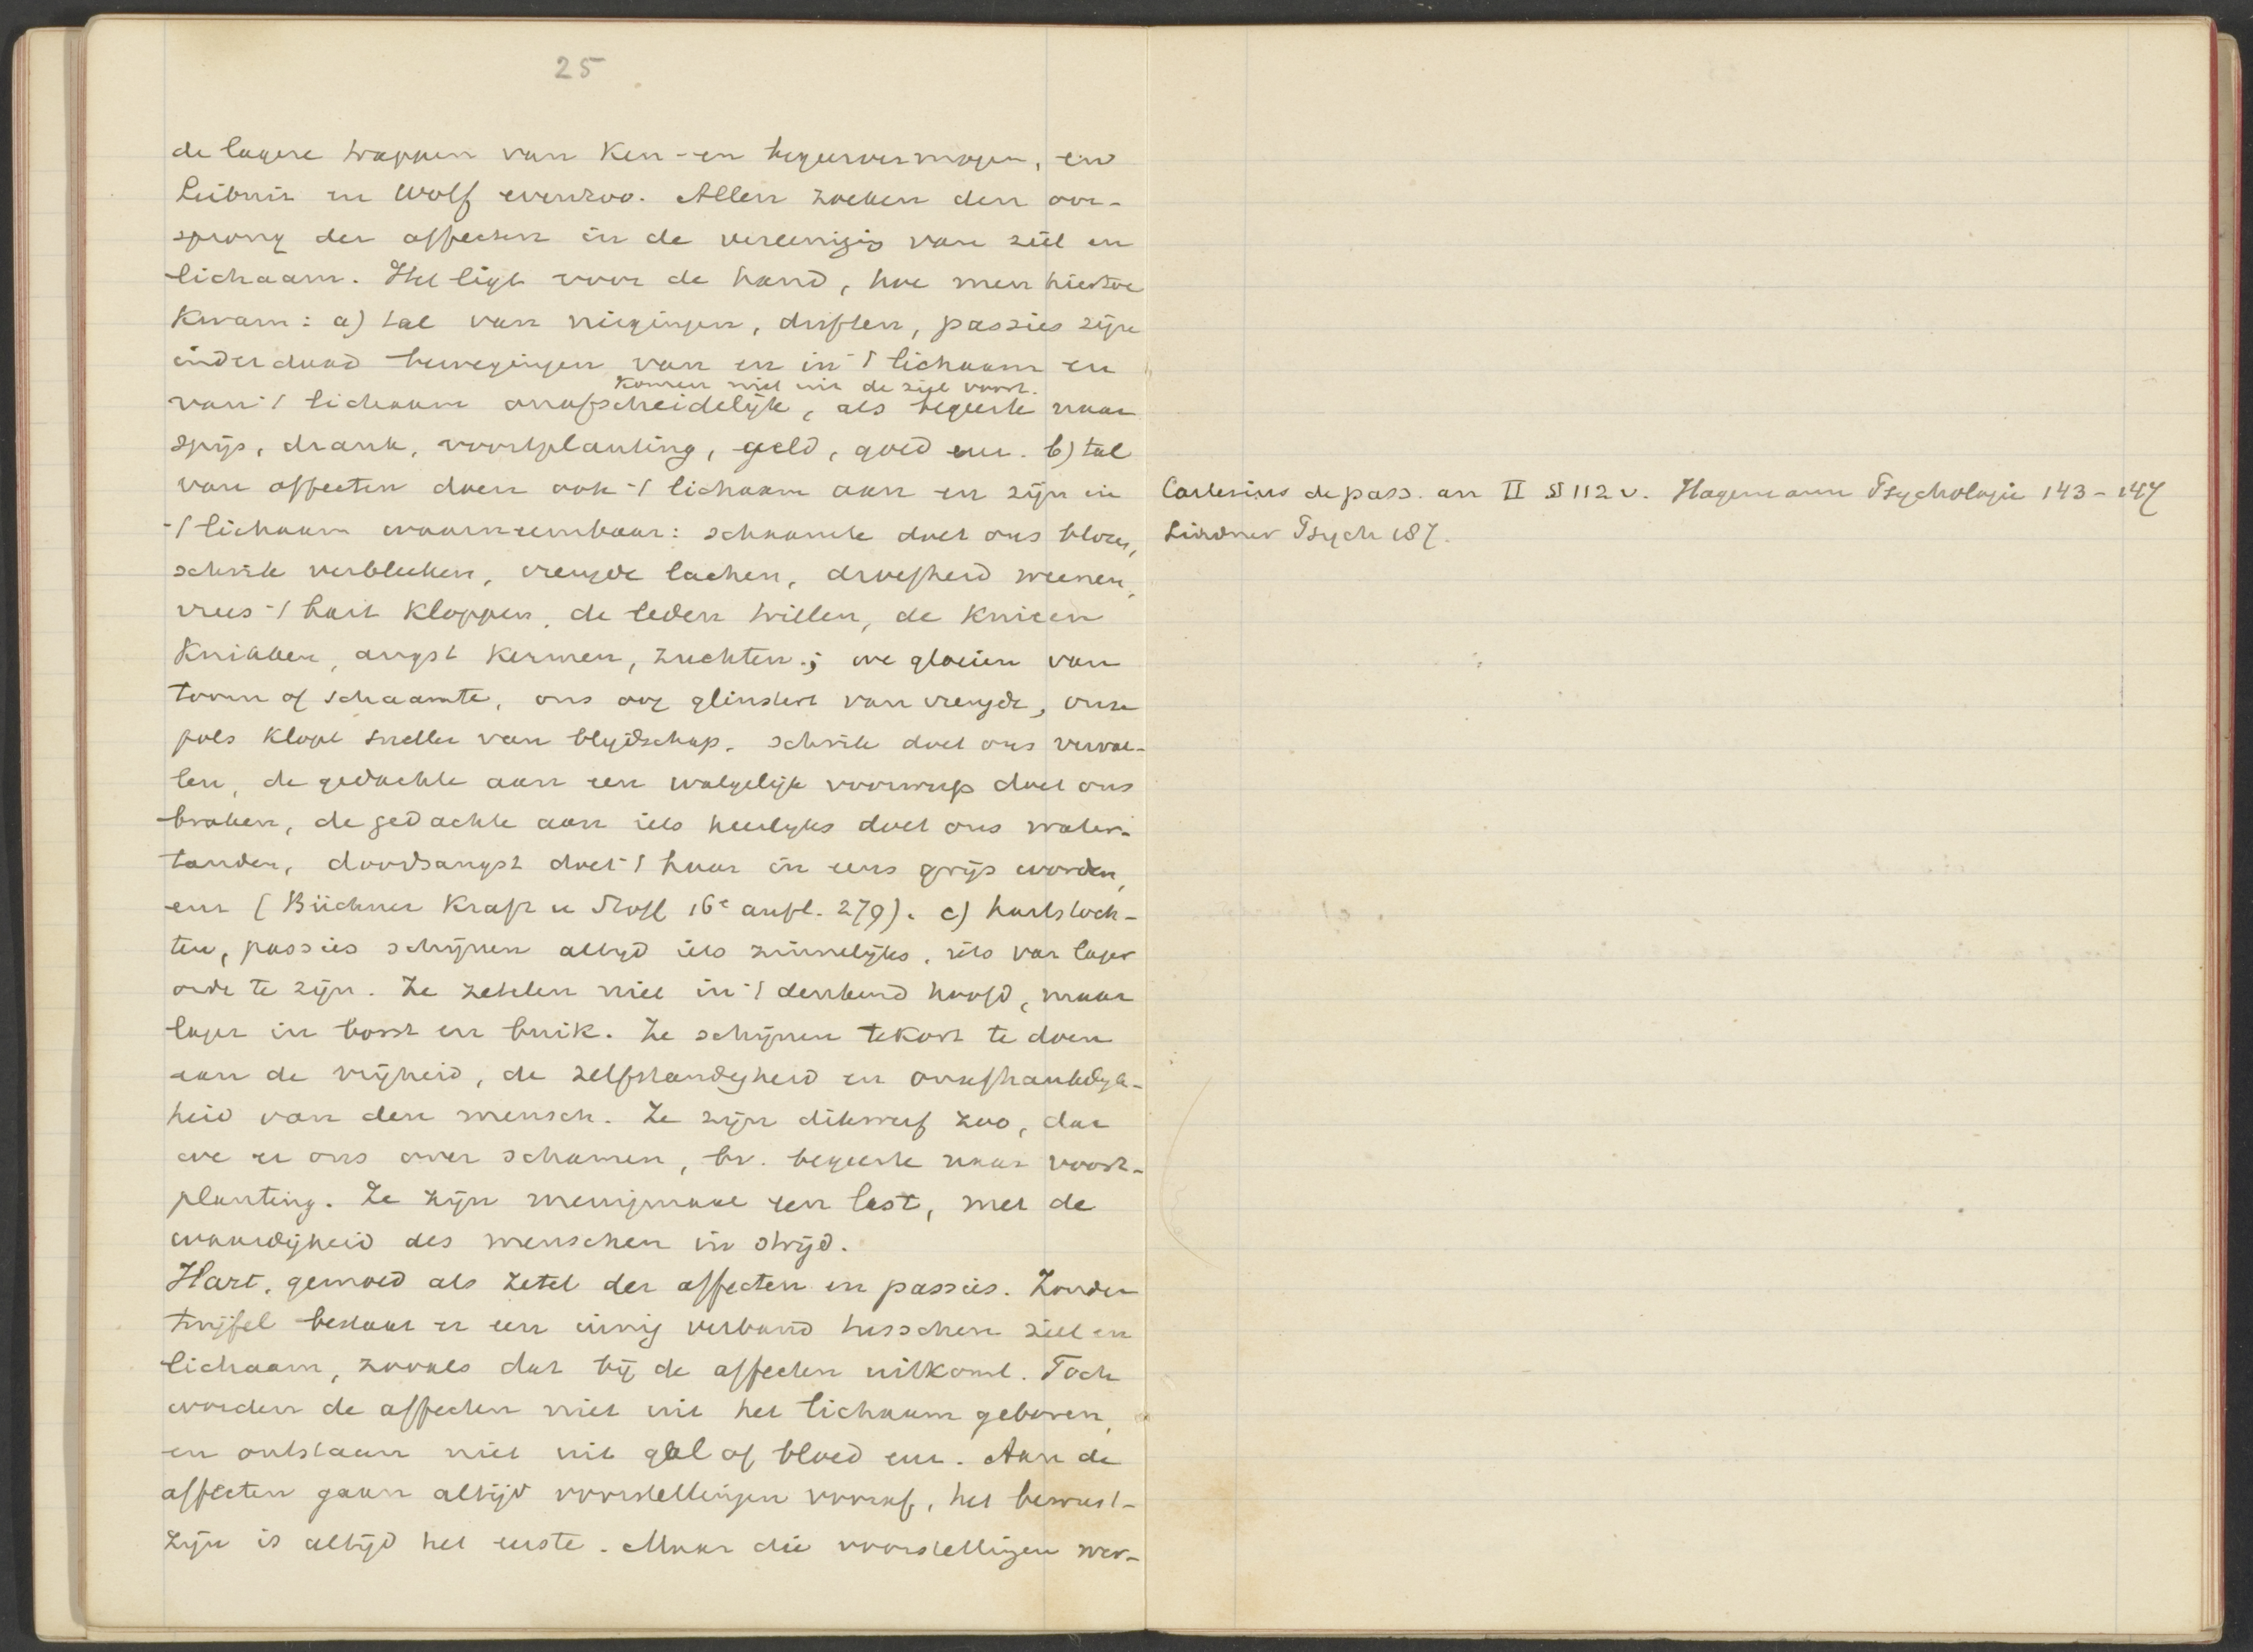 25
de lagere trappen van Ken- en begeervermogen, en
Leibniz en Wolf evenzoo. Allen zoeken den oor-
sprong der affecten in de vereenigig van ziel en
lichaam. Het ligt voor de hand, hoe men hiertoe
Kwam: a) tal van neigingen, driften, passies zijn
inderdaad bewegingen van en in 't lichaam en
komen niet uit de ziel voort.
van 't lichaam onafscheidelijk, als begeerte naar
spijs, drank, voortplanting, geld, goed enz. b) tal
van affecten doen ook 't lichaam aan en zijn in
't lichaam waarneembaar: schaamte doet ons blozen,
schrik verbleeken, vreugde lachen, droefheid weenen,
vrees 't hart Kloppen, de leden trillen, de Knieen
Knikken, angst Kermen, zuchten; we gloeien van
toorn of schaamte, ons oog glinstert van vreugde, onze
pols Klopt sneller van blijdschap. schrik doet ons verval-
len, de gedachte aan een walgelijk voorwerp doet ons
braken, de gedachte aan iets heerlijks doet ons water-
tanden, doodsangst doet 't haar in eens grijs worden,
enz (Büchner Kraft u Stoff 16e aufl. 279). c) hartstoch-
ten, passies schijnen altijd iets zinnelijks, iets van lager
orde te zijn. Ze zetelen niet in 't denkend hoofd, maar
lager in borst en buik. Ze schijnen tekort te doen
aan de vrijheid, de zelfstandigheid en onafhankelijk-
heid van den mensch. Ze zijn dikwerf zoo, dat
we er ons over schamen, bv. begeerte naar voort-
planting. Ze zijn menigmaal een last, met de
waardigheid des menschen in strijd.
Hart, gemoed als zetel der affecten en passies. Zonder
twijfel bestaat er een innig verband tusschen ziel en
lichaam, zooals dat bij de affecten uitkomt. Toch
worden de affecten niet uit het lichaam geboren,
en ontstaan niet uit gal of bloed enz. Aan de
affecten gaan altijd voorstellingen vooraf, het bewust-
zijn is altijd het eerste. Maar die voorstellingen wer-
Cartesius de pass. an II § 112 v. Hagemann Psychologie 143-147
Lindner Psych 187.